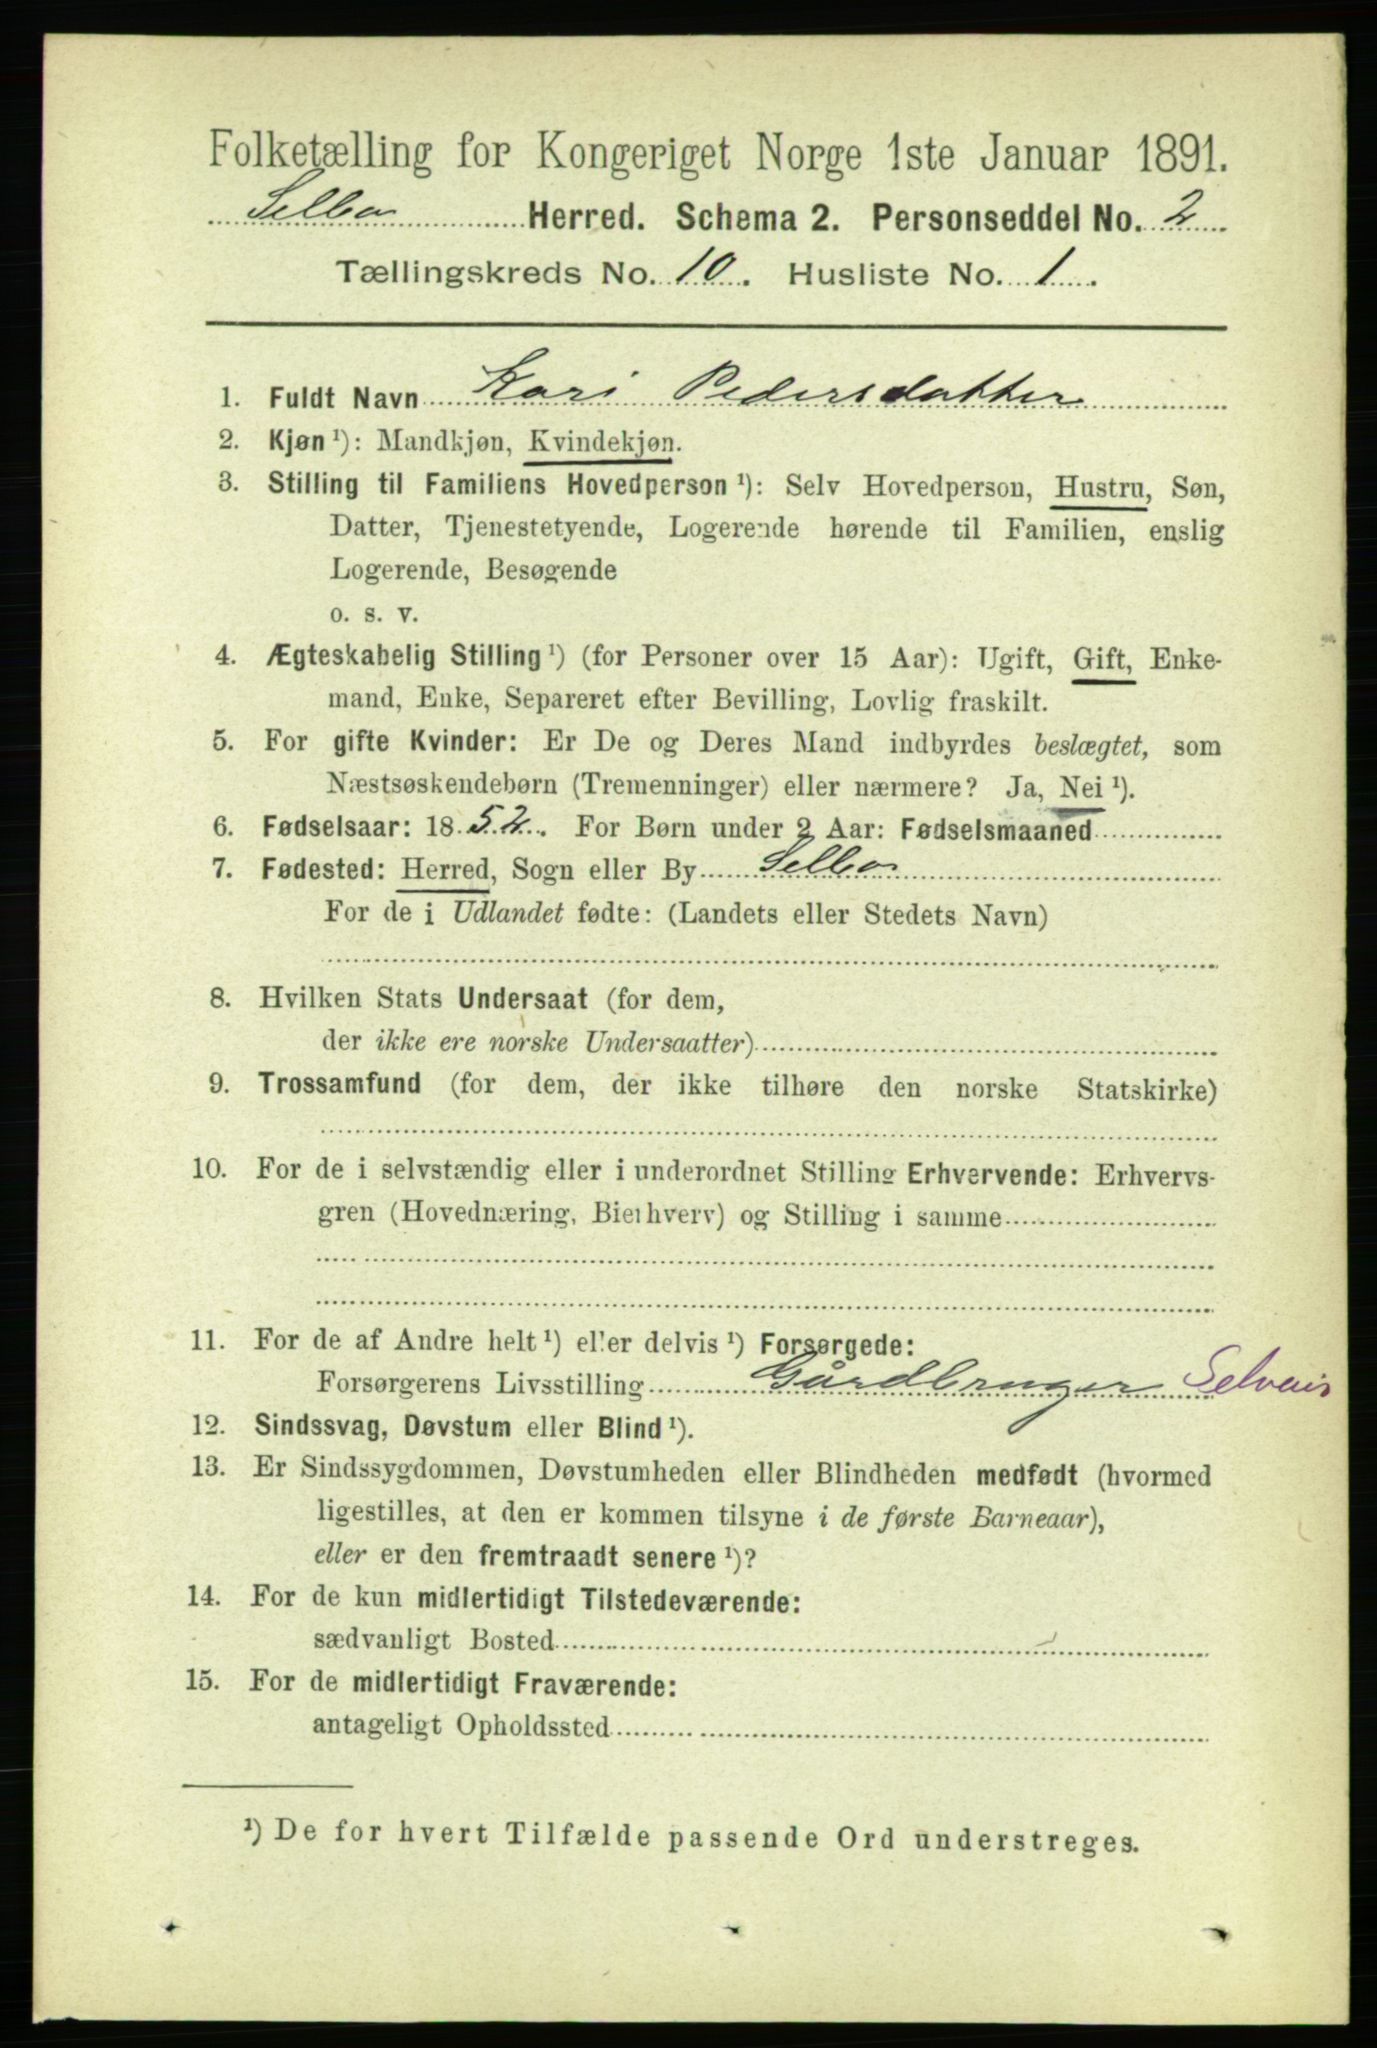 Folketælling for Kongeriget Norge 1ste Januar 1891.
Selbu Herred. Schema 2. Personseddel No. 2
Tællingskreds No. 10. Husliste No. 1.
1. Fuldt Navn Kari Pedersdatter
2. Kjøn ¹): Mandkjøn, Kvindekjøn.
3. Stilling til Familiens Hovedperson ¹): Selv Hovedperson, Hustru, Søn,
Datter, Tjenestetyende, Logerende hørende til Familien, enslig
Logerende, Besøgende
o. s. v.
4. Ægteskabelig Stilling ¹) (for Personer over 15 Aar): Ugift, Gift, Enke-
mand, Enke, Separeret efter Bevilling, Lovlig fraskilt.
5. For gifte Kvinder: Er De og Deres Mand indbyrdes beslægtet, som
Næstsøskendebørn (Tremenninger) eller nærmere? Ja, Nei ¹).
6. Fødselsaar: 1852. For Børn under 2 Aar: Fødselsmaaned
7. Fødested: Herred, Sogn eller By Selbu
For de i Udlandet fødte: (Landets eller Stedets Navn)
8. Hvilken Stats Undersaat (for dem,
der ikke ere norske Undersaatter)
9. Trossamfund (for dem, der ikke tilhøre den norske Statskirke)
10. For de i selvstændig eller i underordnet Stilling Erhvervende: Erhvervs-
gren (Hovednæring, Bierhverv) og Stilling i samme
11. For de af Andre helt ¹) eller delvis ¹) Forsørgede:
Forsørgerens Livsstilling Gårdbruger Selveier
12. Sindssvag, Døvstum eller Blind ¹).
13. Er Sindssygdommen, Døvstumheden eller Blindheden medfødt (hvormed
ligestilles, at den er kommen tilsyne i de første Barneaar),
eller er den fremtraadt senere ¹)?
14. For de kun midlertidigt Tilstedeværende:
sædvanligt Bosted
15. For de midlertidigt Fraværende:
antageligt Opholdssted
¹) De for hvert Tilfælde passende Ord understreges.